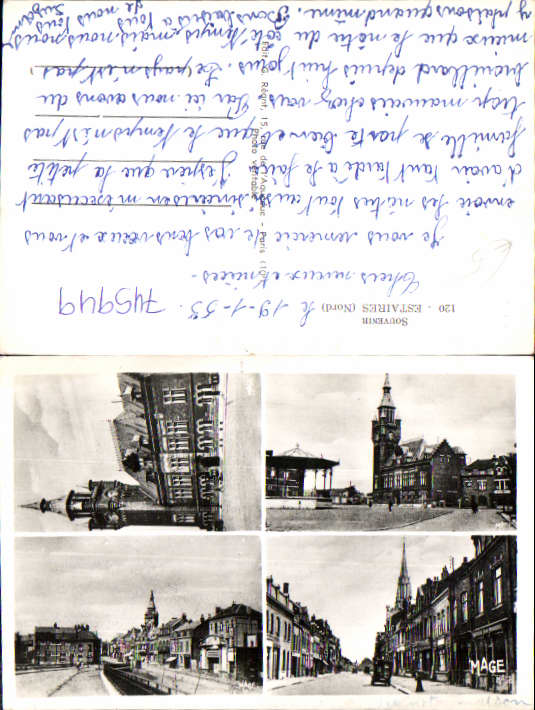 SOUVENIR
120 - ESTAIRES (Nord)
745949
le 19-1-55.
Chers neveux et nièces -
Je vous remercie de vos bons vœux et vous
envoie les nôtres tout aussi sincères en m'excusant
d'avoir tant tardé à le faire. J'espère que la petite
famille se porte bien et que le temps n'est pas
trop mauvais chez vous. Par ici nous avons du
brouillard depuis huit jours. Le pays n'est pas
mieux que le nôtre du côté temps, mais nous nous
y plaisons quand même. Bons baisers à tous
de nous tous
Suzanne
Edit. G. Réant, 15 rue de - Paris (10e)
Photo véritable
MAGE